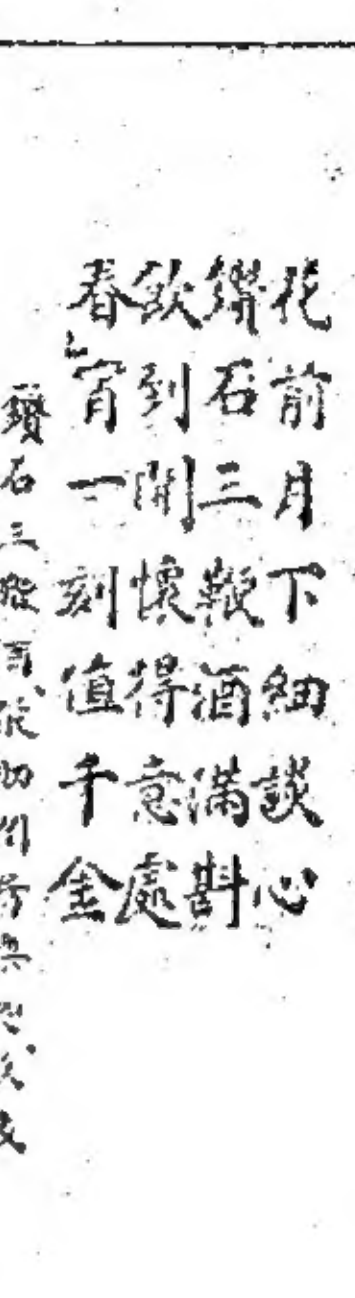 花前月下細談心
鑽石三鞭酒滿斟
飲到開懷得意處
春宵一刻值千金
鑽石三鞭酒